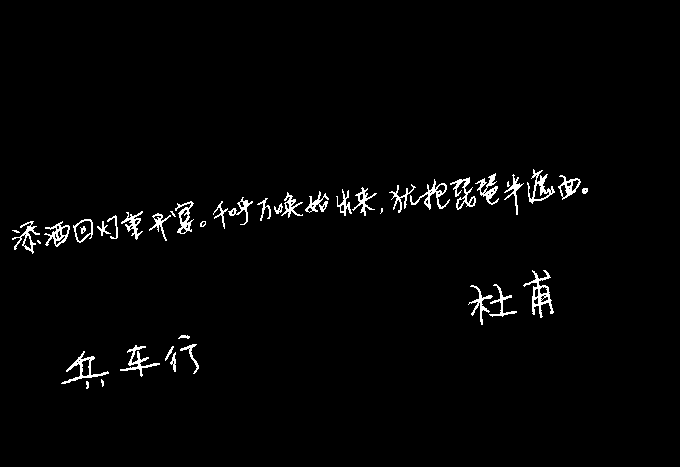 添酒回灯重开宴。千呼万唤始出来,犹抱琵琶半遮面。
杜甫
兵车行